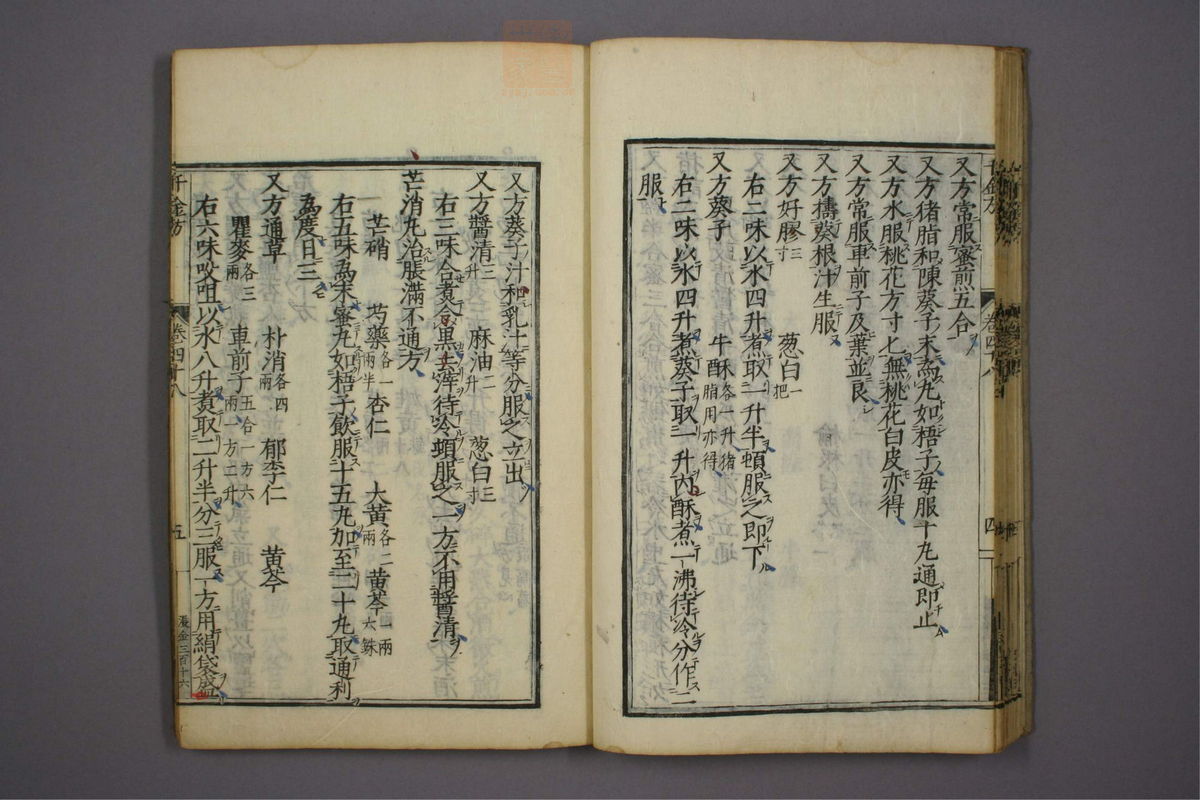 又方常服蜜煎五合
又方猪脂和陳葵子末為丸如梧子每服十丸通即止
又方水服桃花方寸匕無桃花白皮亦得
又方常服車前子及葉並良
又方擣葵根汁生服
又方好膠三寸 葱白一把
右二味以水四升煮取一升半頓服之即下
又方葵子 牛酥各一升猪脂用亦得
右二味以水四升煮葵子取一升内酥煮一沸待冷分作二
服
千金方 卷四十八 四
又方葵子汁和乳汁等分服之立出
又方醬清三升 麻油二升 葱白三寸
右三味合煮令黒去滓待冷頓服之一方不用醬清
芒消丸治脹滿不通方
芒硝 芍藥各一兩半 杏仁 大黄各二兩 黄芩一兩六銖
右五味為末蜜丸如梧子飲服十五丸加至二十丸取通利
為度日三
又方通草 朴消各四兩 郁李仁 黄芩
瞿麥各三兩 車前子五合一方六兩一方二升
右六味㕮咀以水八升煮取二升半分三服一方用絹袋盛
千金方 卷四十八 五
漫金三百十六